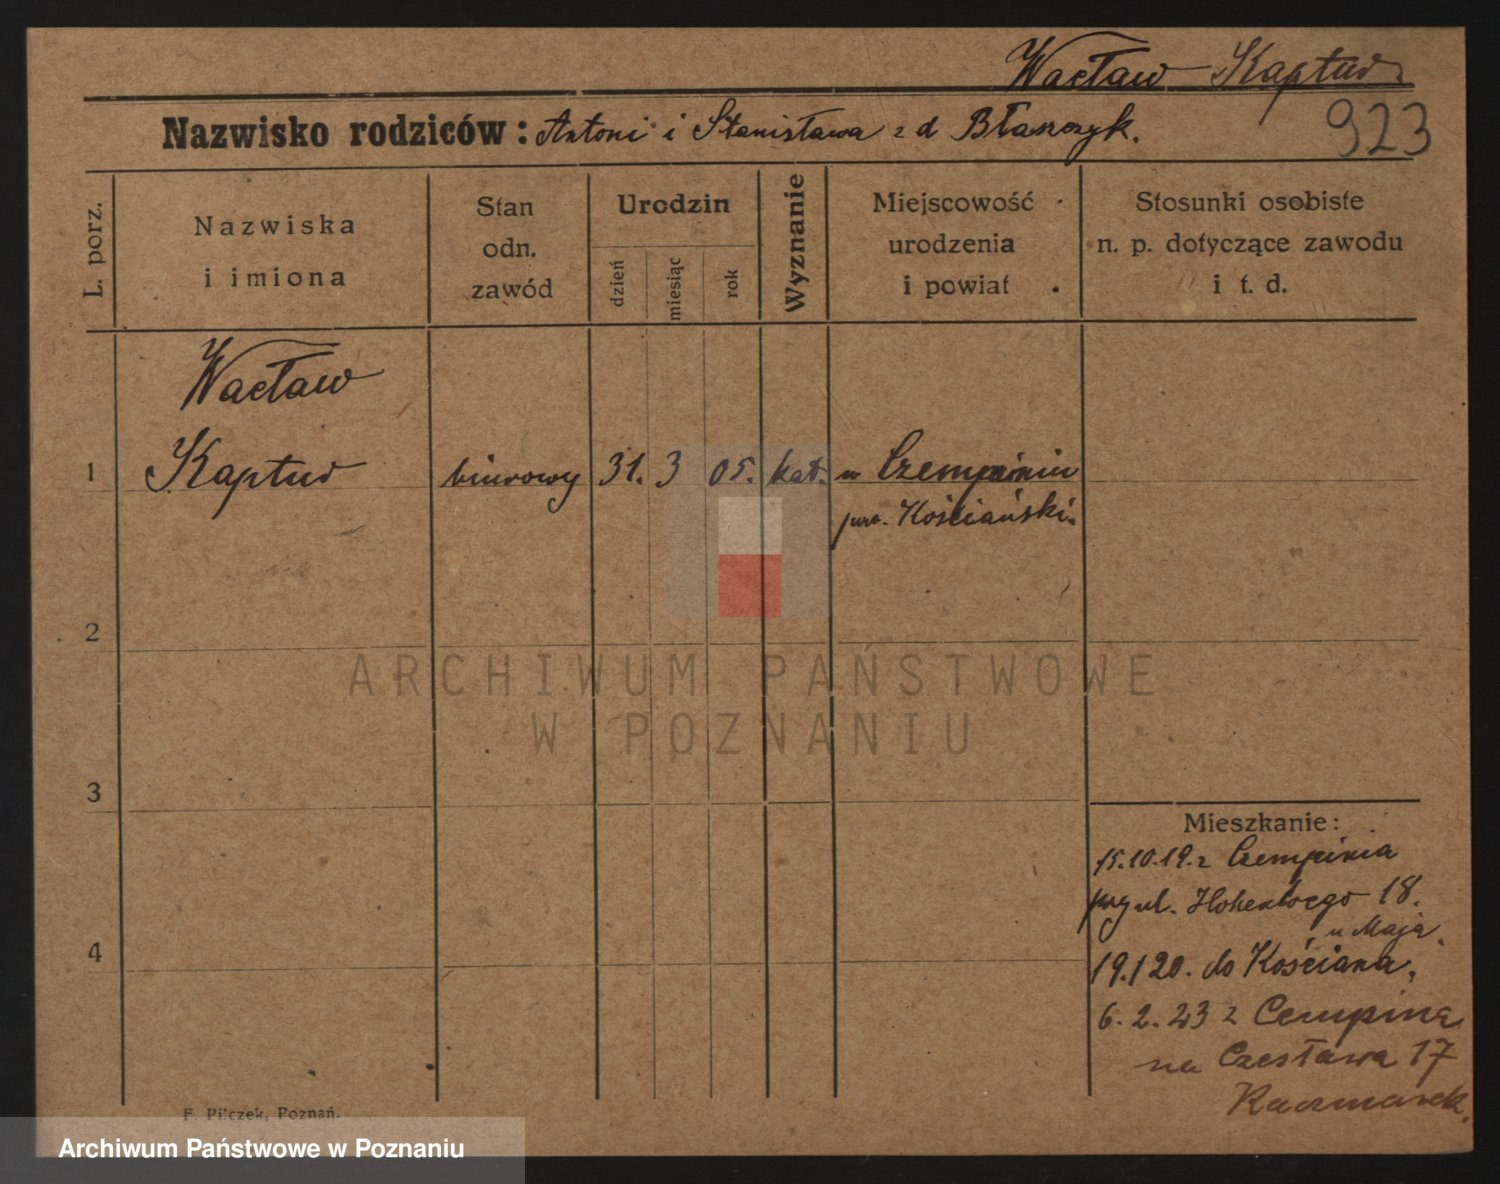 Wacław Kaptur
Nazwisko rodziców: Antoni i Stanisława z d Błaszczyk.
923
L. porz.
Nazwiska
i imiona
Stan
odn.
zawód
Urodzin
dzień
miesiąc
rok
Wyznanie
Miejscowość
urodzenia
i powiat
Stosunki osobiste
n. p. dotyczące zawodu
i t. d.
Wacław
1 Kaptur biurowy 31. 3 05. kat. w Czempiniu
pow. Kościański.
2
ARCHIWUM PAŃSTWOWE
W POZNANIU
3
Mieszkanie:
15.10.19. z Czempinia
przy ul. 18.
u Maja.
4
19.1 20. do Kościana.
6. 2. 23 z
na Czesława 17
Kaczmarek.
F. Pilczek, Poznań.
Archiwum Państwowe w Poznaniu